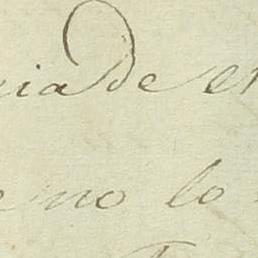 cia de en
e no lo